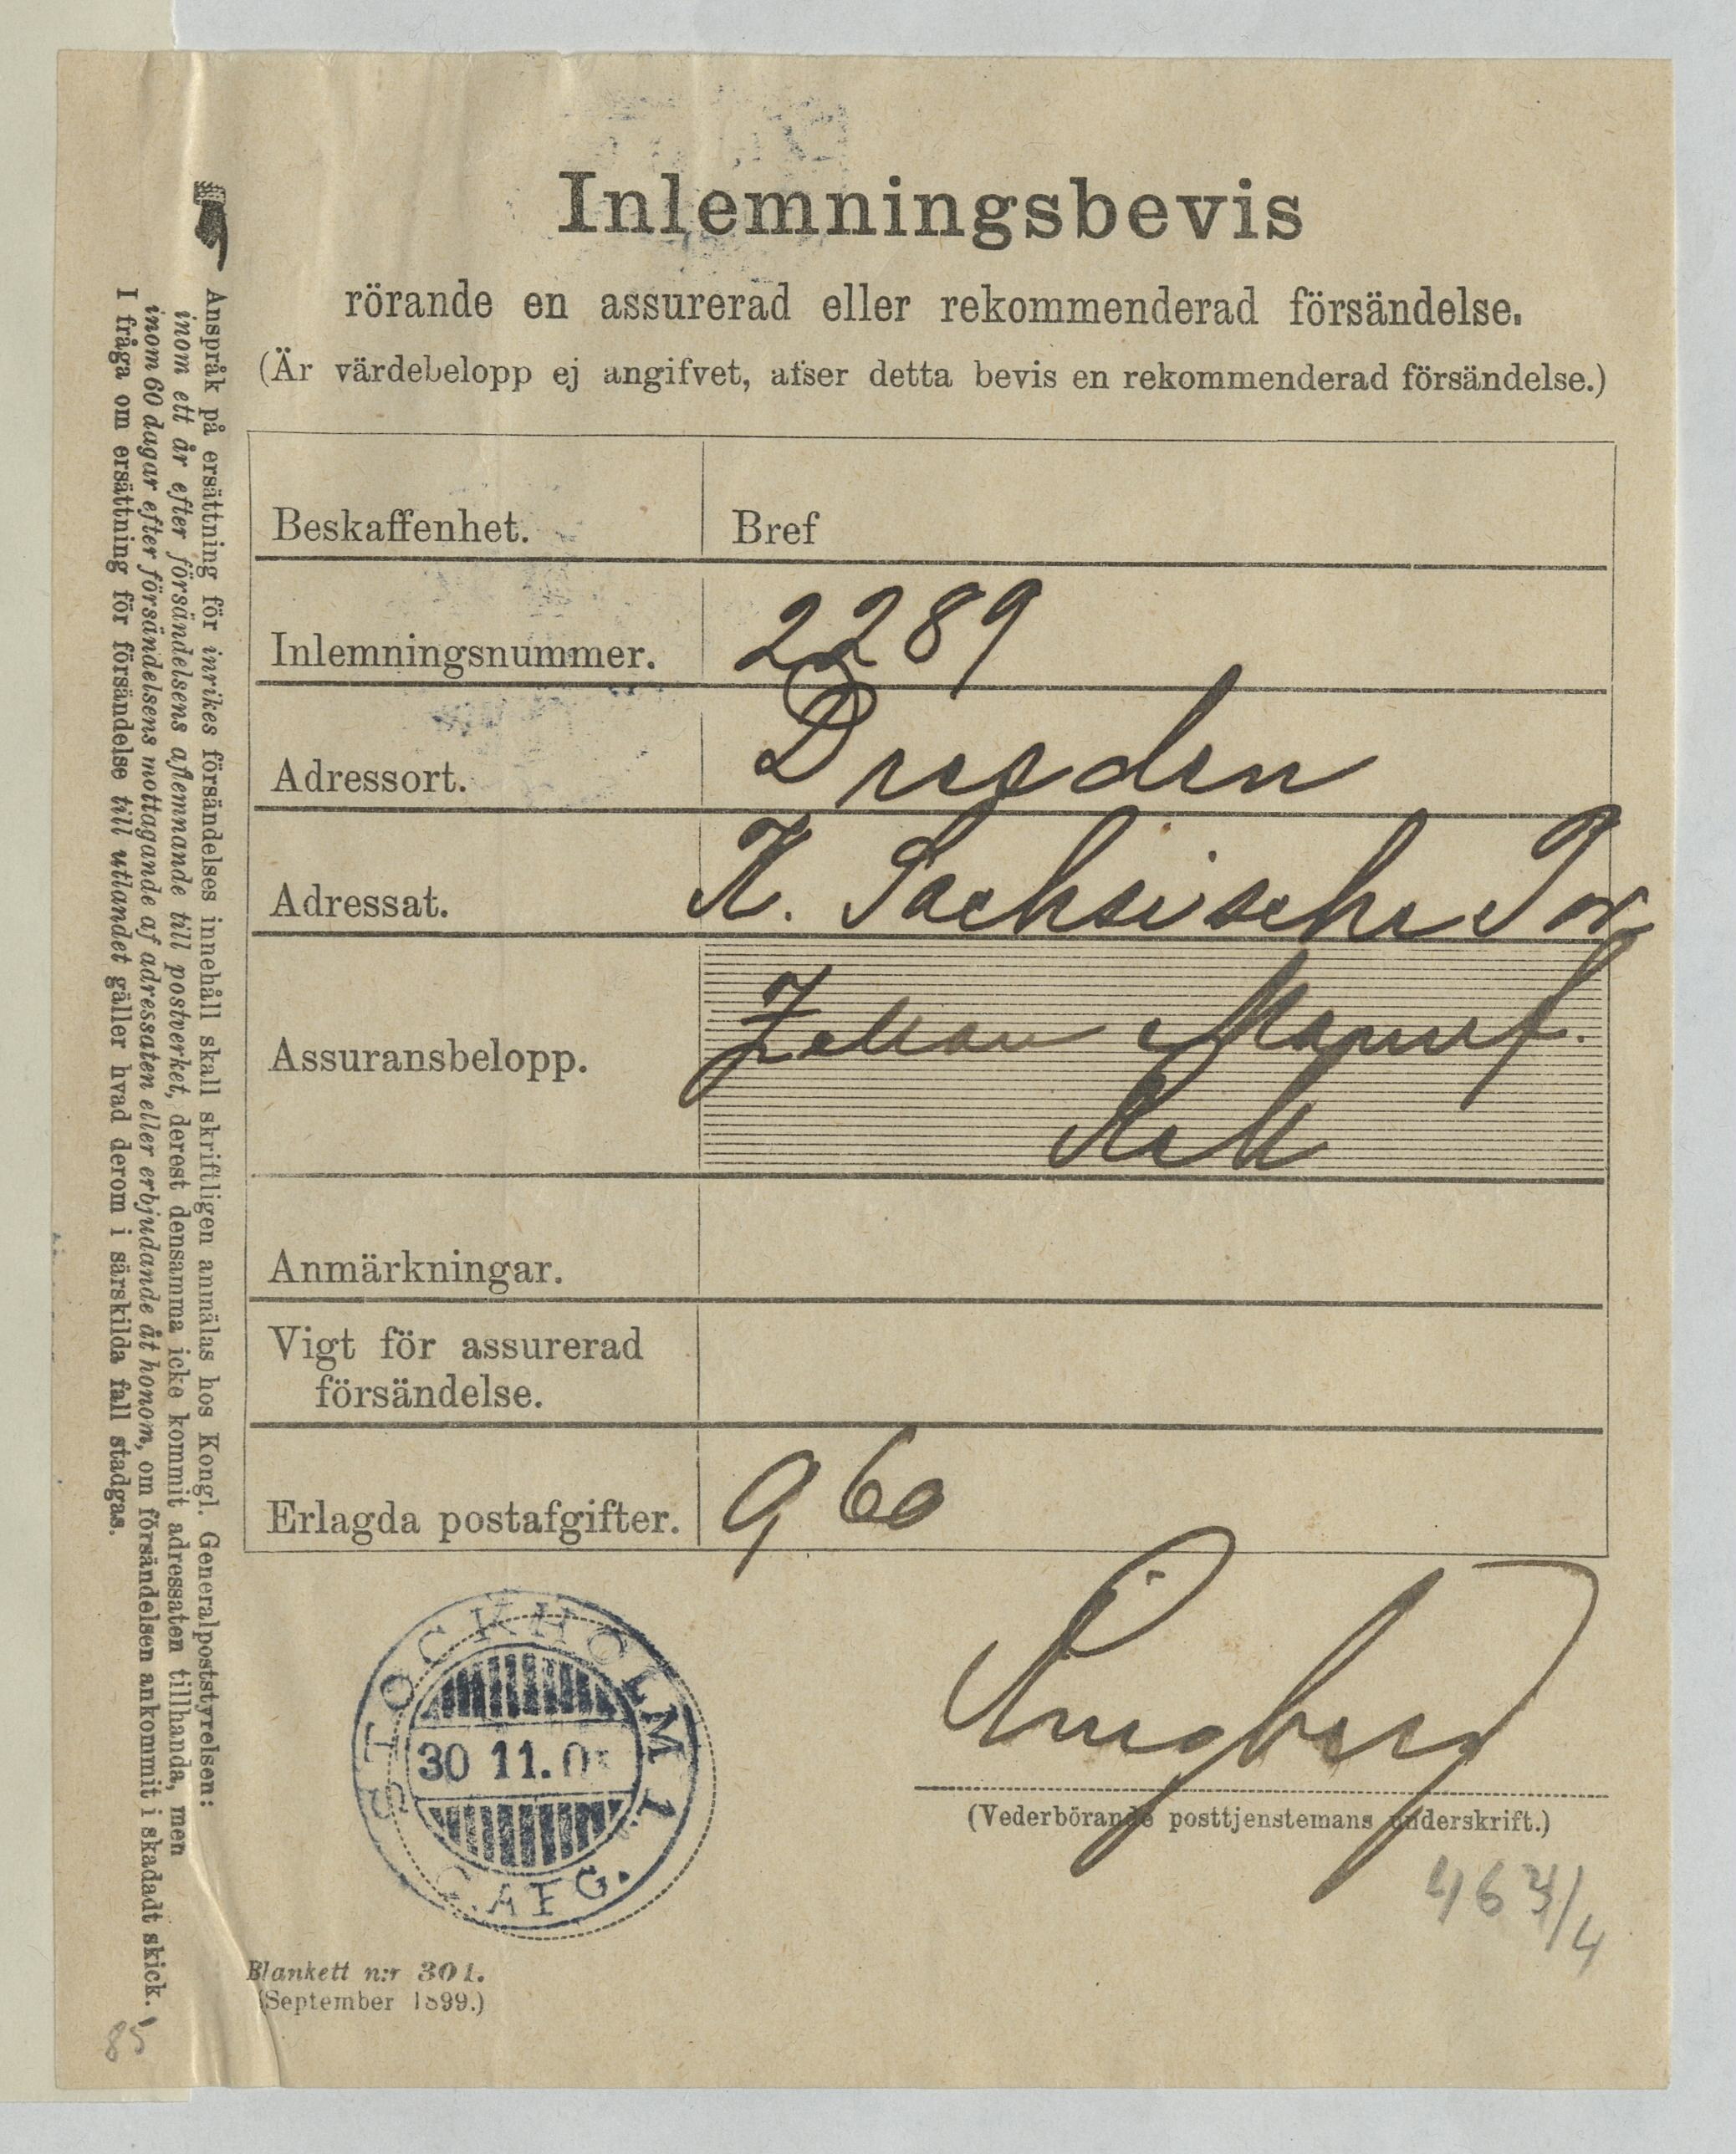 Inlemningsbevis
rörande en assurerad eller rekommenderad försändelse.
(Är värdebelopp ej angifvet, afser detta bevis en rekommenderad försändelse.)
Beskaffenhet. Bref
Inlemningsnummer. 2289
Adressort. Dresden
Adressat. K. Sachsische Por
Assuransbelopp. Manuf.
Anmärkningar.
Vigt för assurerad
försändelse.
Erlagda postafgifter. 9,60
STOCKHOLM 1
30 11.0
C. AFG.
(Vederbörande posttjenstemans underskrift.)
Blankett n:r 301.
(September 1899.)
85
Anspråk på ersättning för inrikes försändelses innehåll skall skriftligen anmälas hos Kongl. Generalpoststyrelsen:
inom ett år efter försändelsens aflemnande till postverket, derest densamma icke kommit adressaten tillhanda, men
inom 60 dagar efter försändelsens mottagande af adressaten eller erbjudande åt honom, om försändelsen ankommit i skadadt skick.
I fråga om ersättning för försändelse till utlandet gäller hvad derom i särskilda fall stadgas.